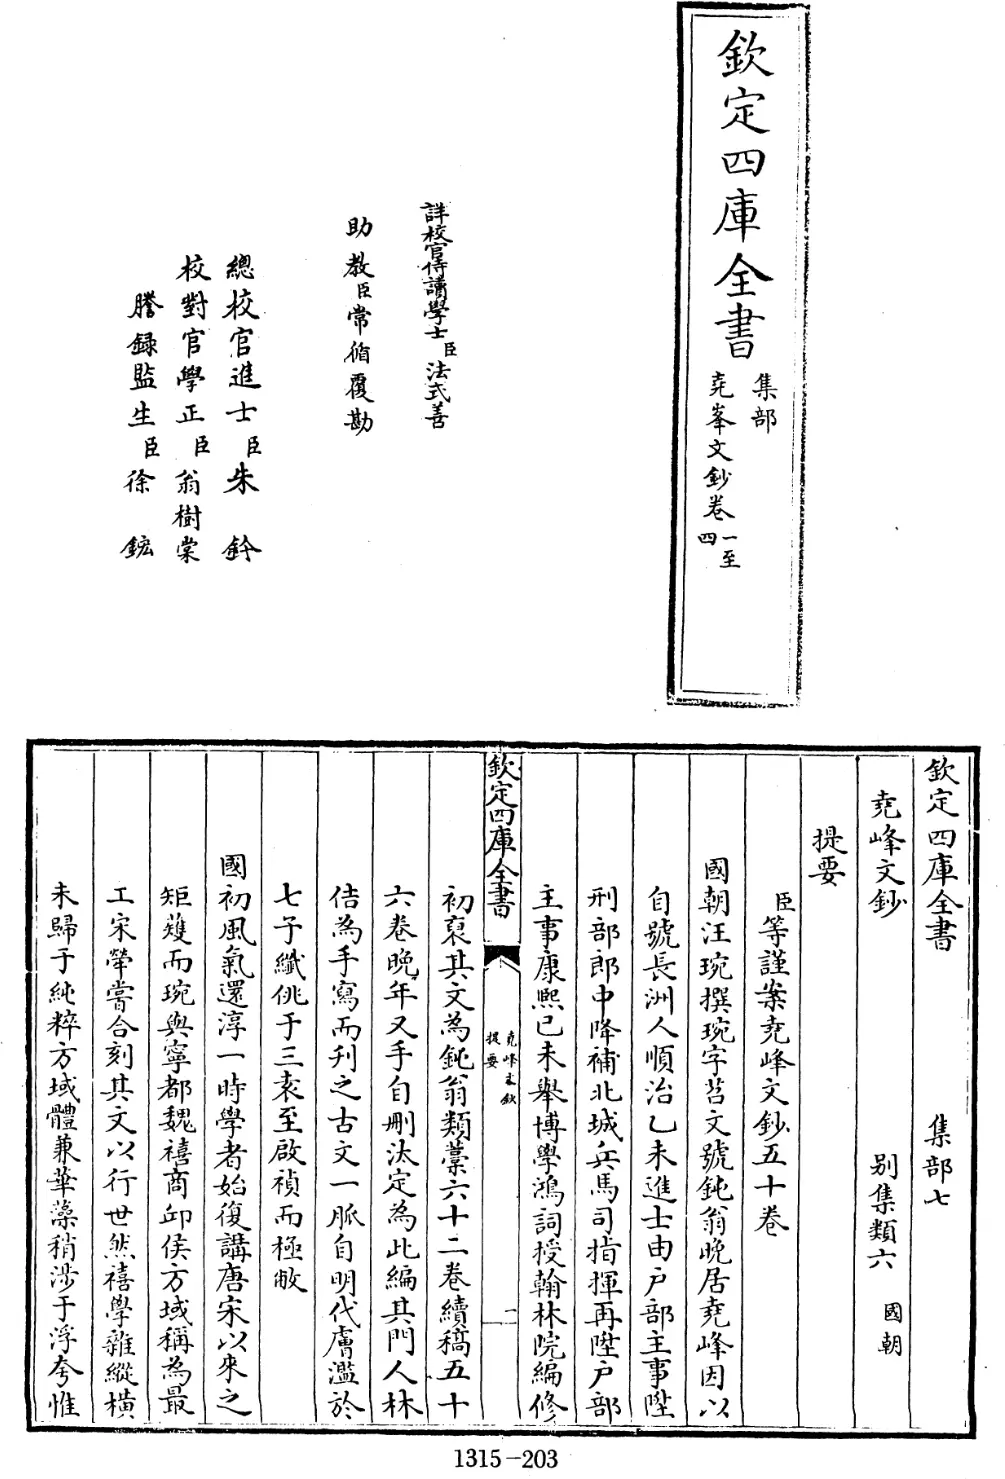 欽定四庫全書
集部
堯峯文鈔卷一至四
詳校官侍讀學士臣法式善
助教臣常循覆勘
總校官進士臣朱鈐
校對官學正臣翁樹棠
謄録監生臣徐鋐
欽定四庫全書 集部七
堯峰文鈔 别集類六 國朝
提要
臣等謹案堯峰文鈔五十卷
國朝汪琬撰琬字苕文號鈍翁晚居堯峰因以
自號長洲人順治乙未進士由户部主事陞
刑部郎中降補北城兵馬司指揮再陞户部
主事康熙己未舉博學鴻詞授翰林院編修
欽定四庫全書
堯峰文鈔
提要
一
初裒其文為鈍翁類藁六十二卷續稿五十
六卷晩年又手自刪汰定為此編其門人林
佶為手寫而刋之古文一脈自明代膚濫於
七子纖佻于三袁至啟禎而極敝
國初風氣還淳一時學者始復講唐宋以來之
矩矱而琬與寧都魏禧商邱侯方域稱為最
工宋犖嘗合刻其文以行世然禧學雜縱横
未歸于純粹方域體兼華藻稍涉于浮夸惟
1315-203